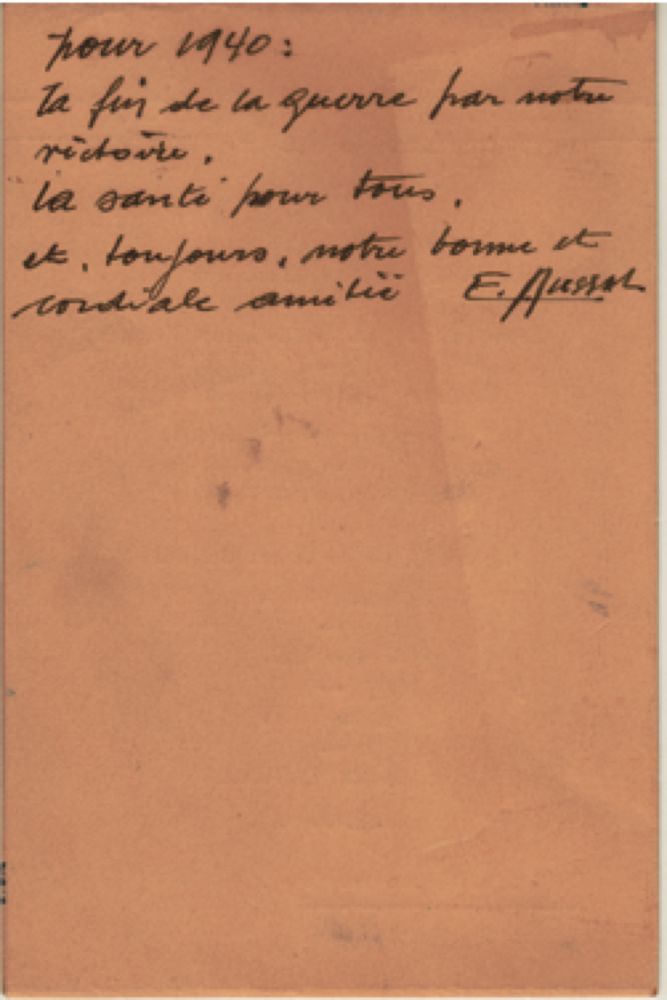 pour 1940 :
la fin de la guerre par notre
victoire.
la santé pour tous.
et, toujours, notre bonne et
cordiale amitié E.